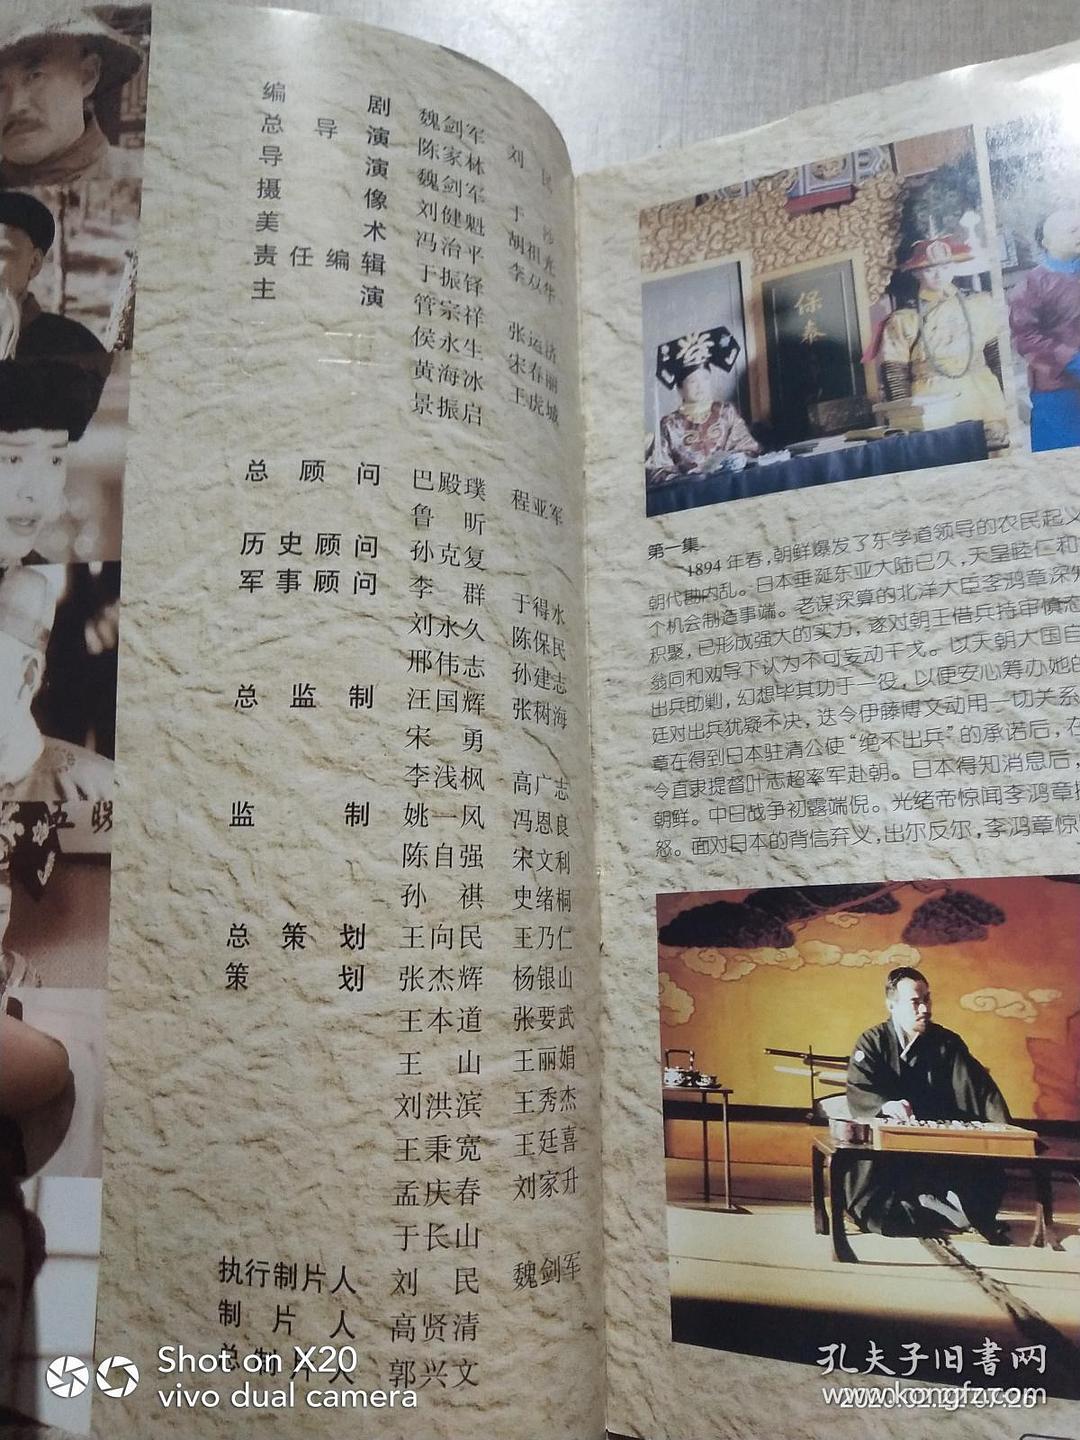 编剧 魏剑军 刘民
总导演 陈家林
导演 魏剑军 于
摄像 刘健魁 胡祖光
美术 冯治平 李双华
责任编辑 于振铎
主演 管宗祥 张运济
侯永生 宋春丽
黄海冰 王虎城
景振启
总顾问 巴殿璞 程亚军
鲁昕
历史顾问 孙克复
军事顾问 李群 于得水
刘永久 陈保民
邢伟志 孙建志
总监制 汪国辉 张树海
宋勇
李浅枫 高广志
监制 姚一风 冯恩良
陈自强 宋文利
孙祺 史绪桐
总策划 王向民 王乃仁
策划 张杰辉 杨银山
王本道 张要武
王山 王丽娟
刘洪滨 王秀杰
王秉宽 王廷喜
孟庆春 刘家升
于长山
执行制片人 刘民 魏剑军
制片人 高贤清
总制片人 郭兴文
保泰
第一集
1894年春,朝鲜爆发了东学道领导的农民起义
朝代勘内乱。日本垂涎东亚大陆已久,天皇睦仁和
个机会制造事端。老谋深算的北洋大臣李鸿章深知
积聚,已形成强大的实力,遂对朝王借兵持审慎态
翁同和劝导下认为不可妄动干戈。以天朝大国自
出兵助剿,幻想毕其功于一役,以便安心筹办她的
廷对出兵犹疑不决,迭令伊藤博文动用一切关系
章在得到日本驻清公使“绝不出兵”的承诺后,在
令直隶提督叶志超率军赴朝。日本得知消息后,
朝鲜。中日战争初露端倪。光绪帝惊闻李鸿章
怒。面对日本的背信弃义,出尔反尔,李鸿章惊
Shot on X20
vivo dual camera
孔夫子旧书网
www.kongfz.com
2020.02.22 07:26